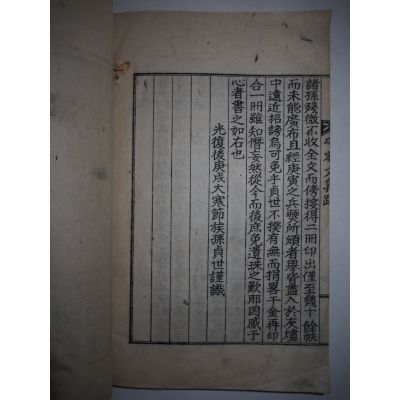 諸孫殘微不收全文而傍搜得二冊印出僅至幾十餘帙
而未能廣布且經庚寅之兵燹所頒者擧皆盡入於灰燼
中遠近招謗烏可免乎貞世不揆有無而捐畧千金再印
合一冊雖知僭妄然從今而後庶免遺珠之歎耶因感于
心者書之如右也
光復後庚戌大寒節族孫貞世謹識